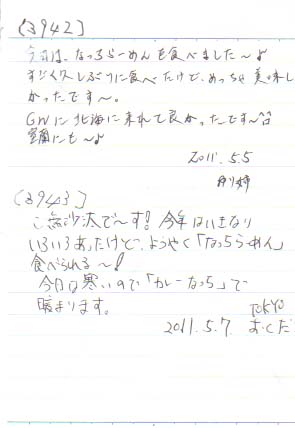 [3942]
今日は、なっちらーめんを食べました〜♪
すごく久しぶりに食べたけど、めっちゃ美味し
かったです〜。
GWに北海に来れて良かったです〜!!
室蘭にも〜♪
2011.5.5
[3943]
ご無沙汰で〜す！今年はいきなり
いろいろあったけど、ようやく「なっちらーめん」
食べられる〜!
今日は寒いので「カレーなっち」で
暖まります。
TOKYO
2011.5.7. おくだ